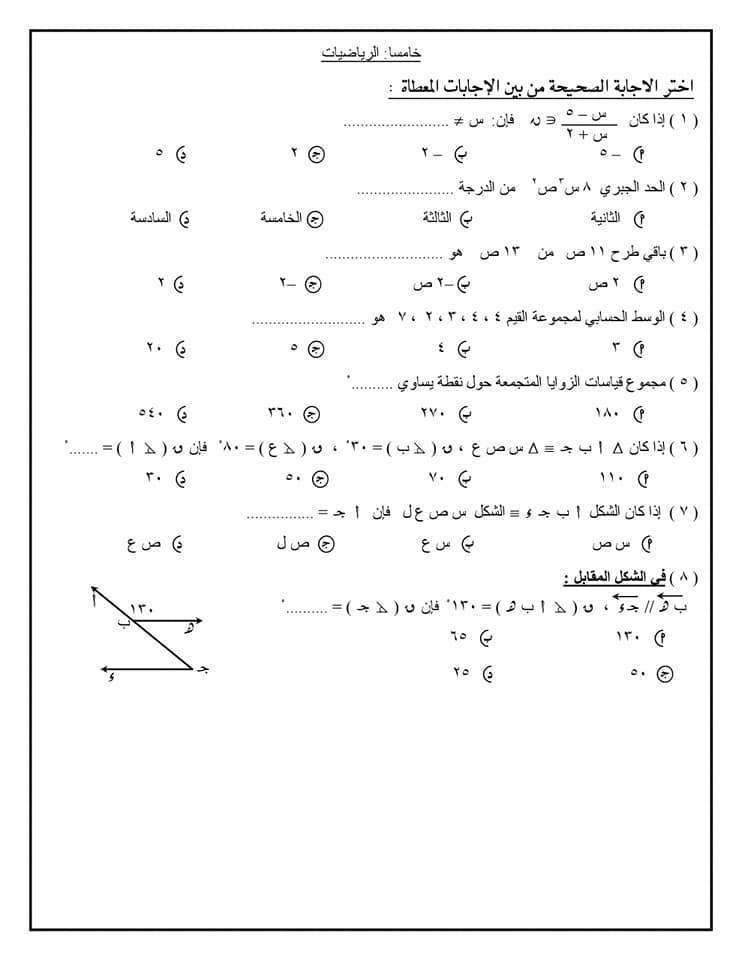 خامسا: الرياضيات
اختر الاجابة الصحيحة من بين الإجابات المعطاة :
( ١ ) إذا كان (س – ٥)/(س + ٢) ∋ ن فإن: س ≠ .........................
أ) – ٥ ب) – ٢ ج) ٢ د) ٥
( ٢ ) الحد الجبري ٨ س³ ص² من الدرجة .......................
أ) الثانية ب) الثالثة ج) الخامسة د) السادسة
( ٣ ) باقي طرح ١١ ص من ١٣ ص هو ............................
أ) ٢ ص ب) –٢ ص ج) –٢ د) ٢
( ٤ ) الوسط الحسابي لمجموعة القيم ٤ ، ٤ ، ٣ ، ٢ ، ٧ هو ...........................
أ) ٣ ب) ٤ ج) ٥ د) ٢٠
( ٥ ) مجموع قياسات الزوايا المتجمعة حول نقطة يساوي ..........°
أ) ١٨٠ ب) ٢٧٠ ج) ٣٦٠ د) ٥٤٠
( ٦ ) إذا كان Δ أ ب جـ ≡ Δ س ص ع ، ق ( ∠ ب ) = ٣٠° ، ق ( ∠ ع ) = ٨٠° فإن ق ( ∠ أ ) = .......°
أ) ١١٠ ب) ٧٠ ج) ٥٠ د) ٣٠
( ٧ ) إذا كان الشكل أ ب جـ ء ≡ الشكل س ص ع ل فإن أ جـ = ................
أ) س ص ب) س ع ج) ص ل د) ص ع
( ٨ ) في الشكل المقابل :
ب هـ // جـ ء ، ق ( ∠ أ ب هـ ) = ١٣٠° فإن ق ( ∠ جـ ) = ..........°
أ) ١٣٠ ب) ٦٥
ج) ٥٠ د) ٢٥
أ
١٣٠
ب
هـ
جـ
ء